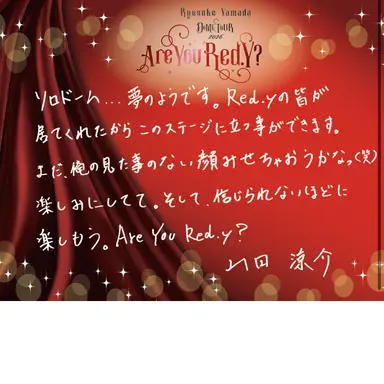 Ryosuke Yamada
DOME TOUR
2026
Are You Red.Y?
ソロドーム...夢のようです。Red.yの皆が
居てくれたから このステージに立つ事ができます。
まだ、俺の見た事のない顔みせちゃおうかなっ(笑)
楽しみにしてて。そして、信じられないほどに
楽しもう。Are You Red.y?
山田 涼介